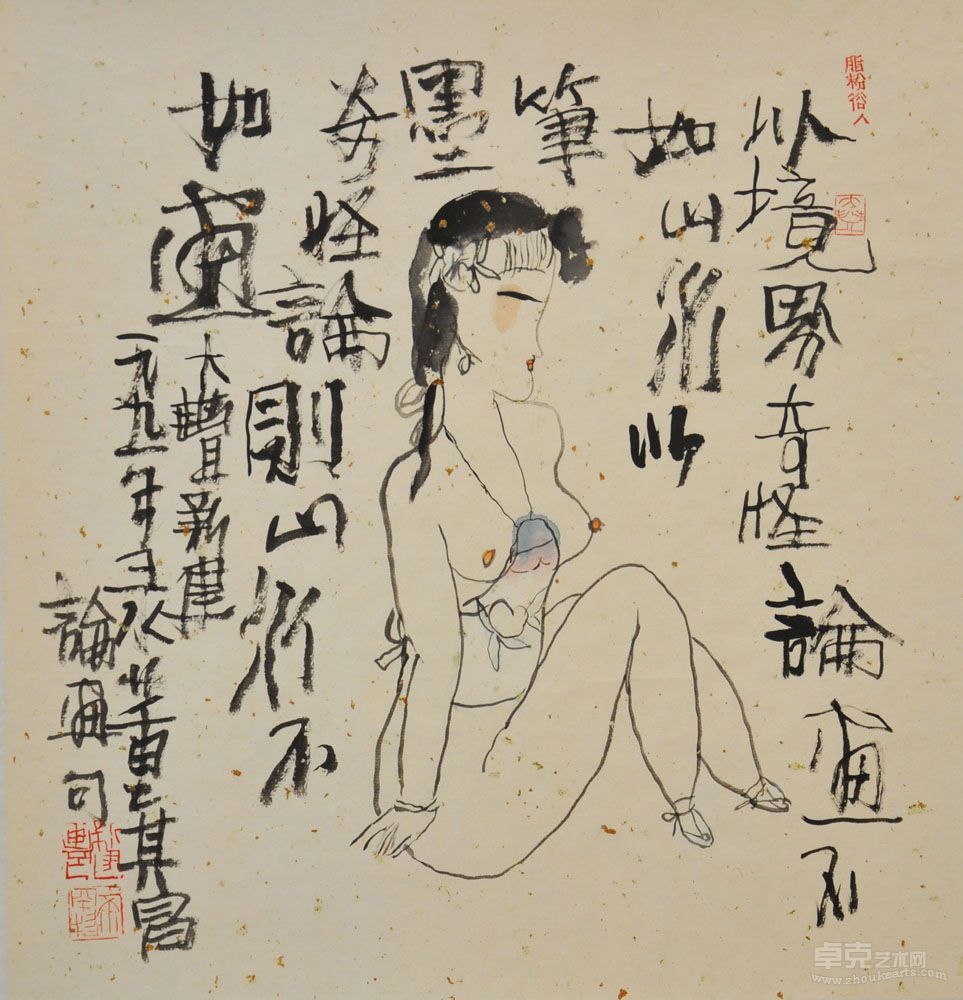 脂粉俗人
以境界奇怪論畫不
如山水以
筆
墨
奇怪論
則山水不
如畫
大豐新建
年 董其昌
論畫句
卓克艺术网
www.zhoukearts.com